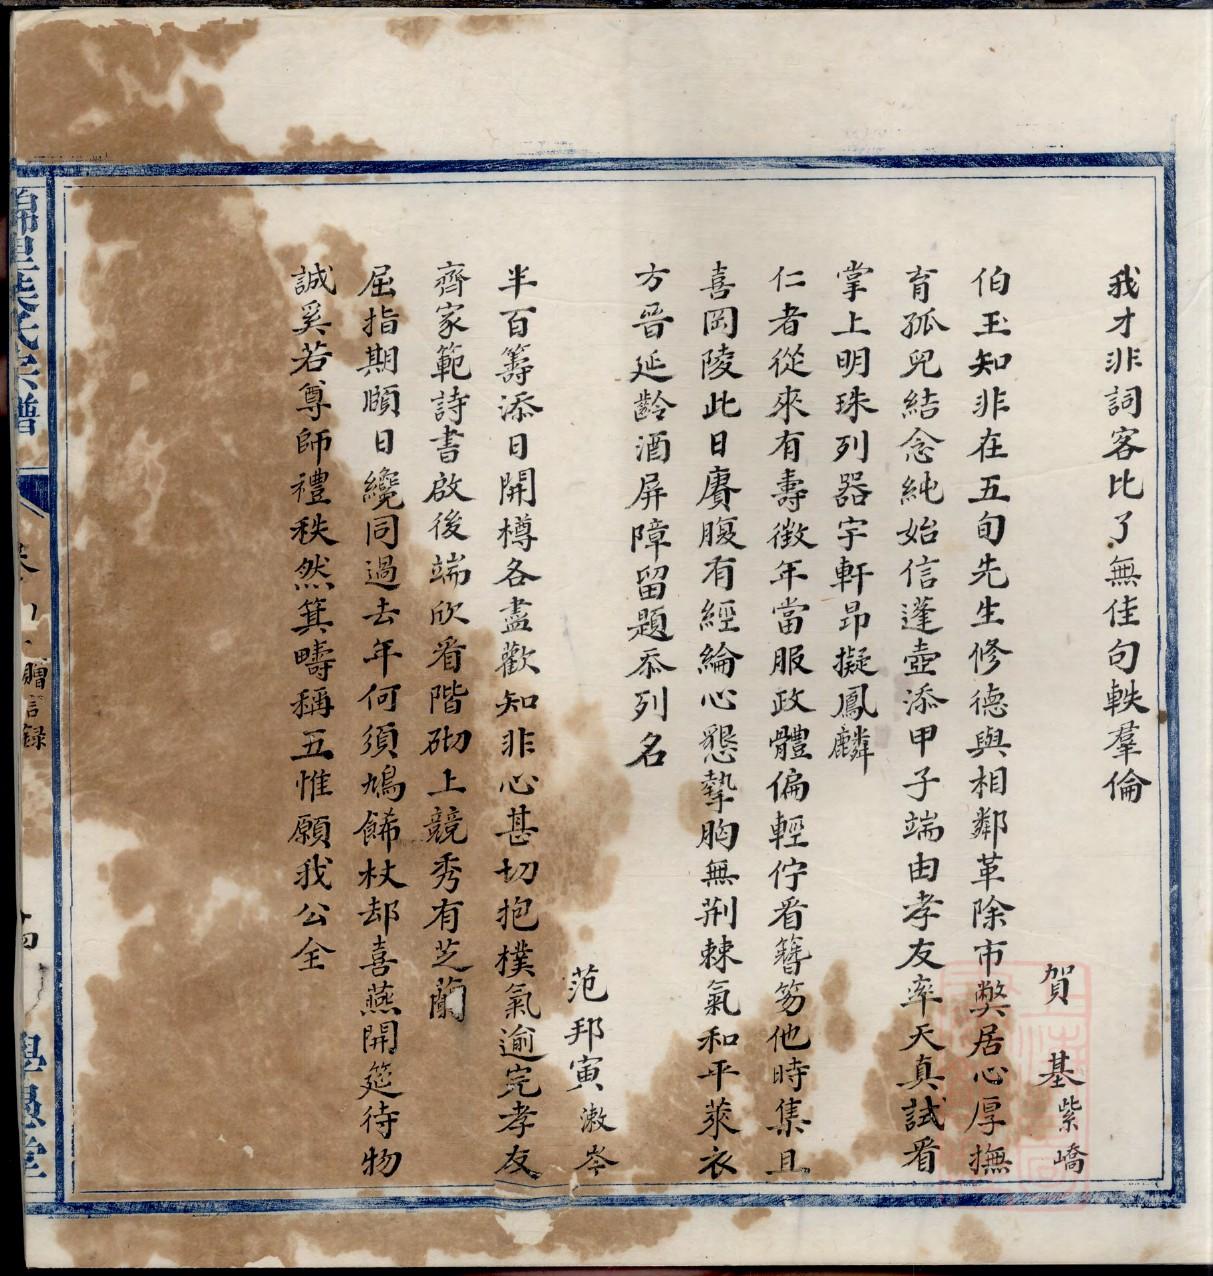 我才非詞客比了無佳句軼羣倫
賀基紫嶠
伯玉知非在五旬先生修德與相鄰革除市獘居心厚撫
育孤兒結念純始信蓬壺添甲子端由孝友率天真試看
掌上明珠列器宇軒昻擬鳳麟
仁者從來有壽徵年當服政體偏輕佇看簪笏他時集且
喜岡陵此日賡腹有經綸心懇摯胸無荆棘氣和平萊衣
方晉延齡酒屏障留題忝列名
范邦寅潄岑
半百籌添日開樽各盡歡知非心甚切抱樸氣逾完孝友
齊家範詩書啟後端欣看階砌上競秀有芝蘭
屈指期頤日纔同過去年何須鳩餙杖却喜燕開筵待物
誠奚若尊師禮秩然箕疇稱五惟願我公全
氏宗譜
贈言錄